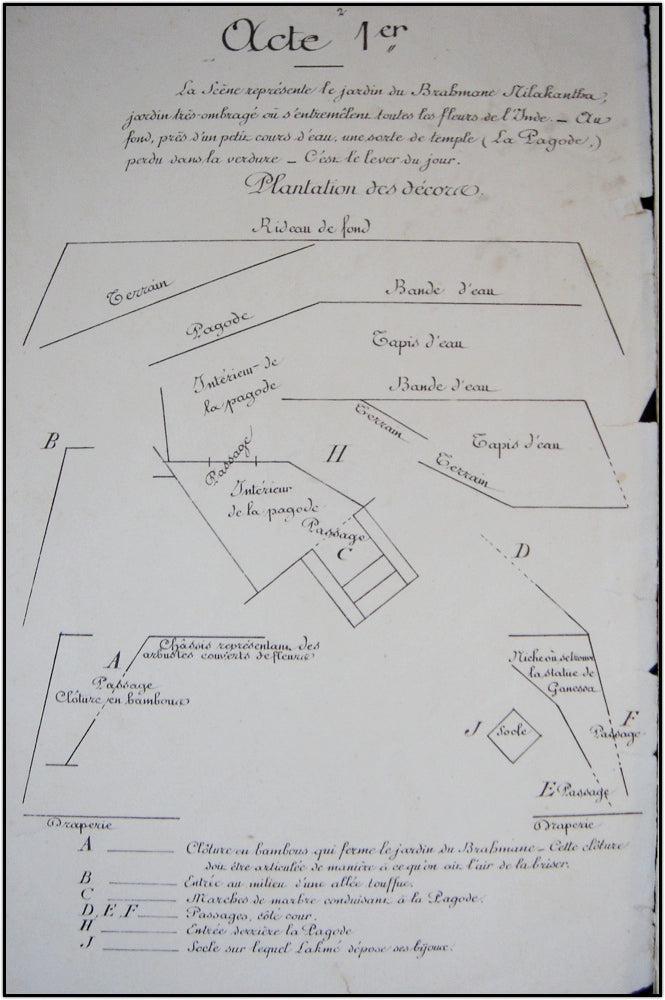 Acte 1er
La Scène représente le jardin du Brahmane Nilakantha,
jardin très ombragé où s'entremêlent toutes les fleurs de l'Inde. — Au
fond, près d'un petit cours d'eau, une sorte de temple (La Pagode,)
perdu dans la verdure — C'est le lever du jour.
Plantation des décors.
Rideau de fond
Terrain
Bande d'eau
Pagode
Tapis d'eau
Intérieur de
la pagode
Bande d'eau
Terrain
Tapis d'eau
B
Passage
H
Terrain
Intérieur
de la pagode
Passage
C
D
Châssis représentant des
arbustes couverts de fleurs
A
Passage
Clôture en bambous
Niche où se trouve
la statue de
Ganessa
J
Socle
F
Passage
E Passage
Draperie
Draperie
A — Clôture en bambous qui ferme le jardin du Brahmane — Cette clôture
doit être articulée de manière à ce qu'on ait l'air de la briser.
B — Entrée au milieu d'une allée touffue.
C — Marches de marbre conduisant à la Pagode.
D, E, F — Passages, côté cour.
H — Entrée derrière la Pagode
J — Socle sur lequel Lakmé dépose ses bijoux.